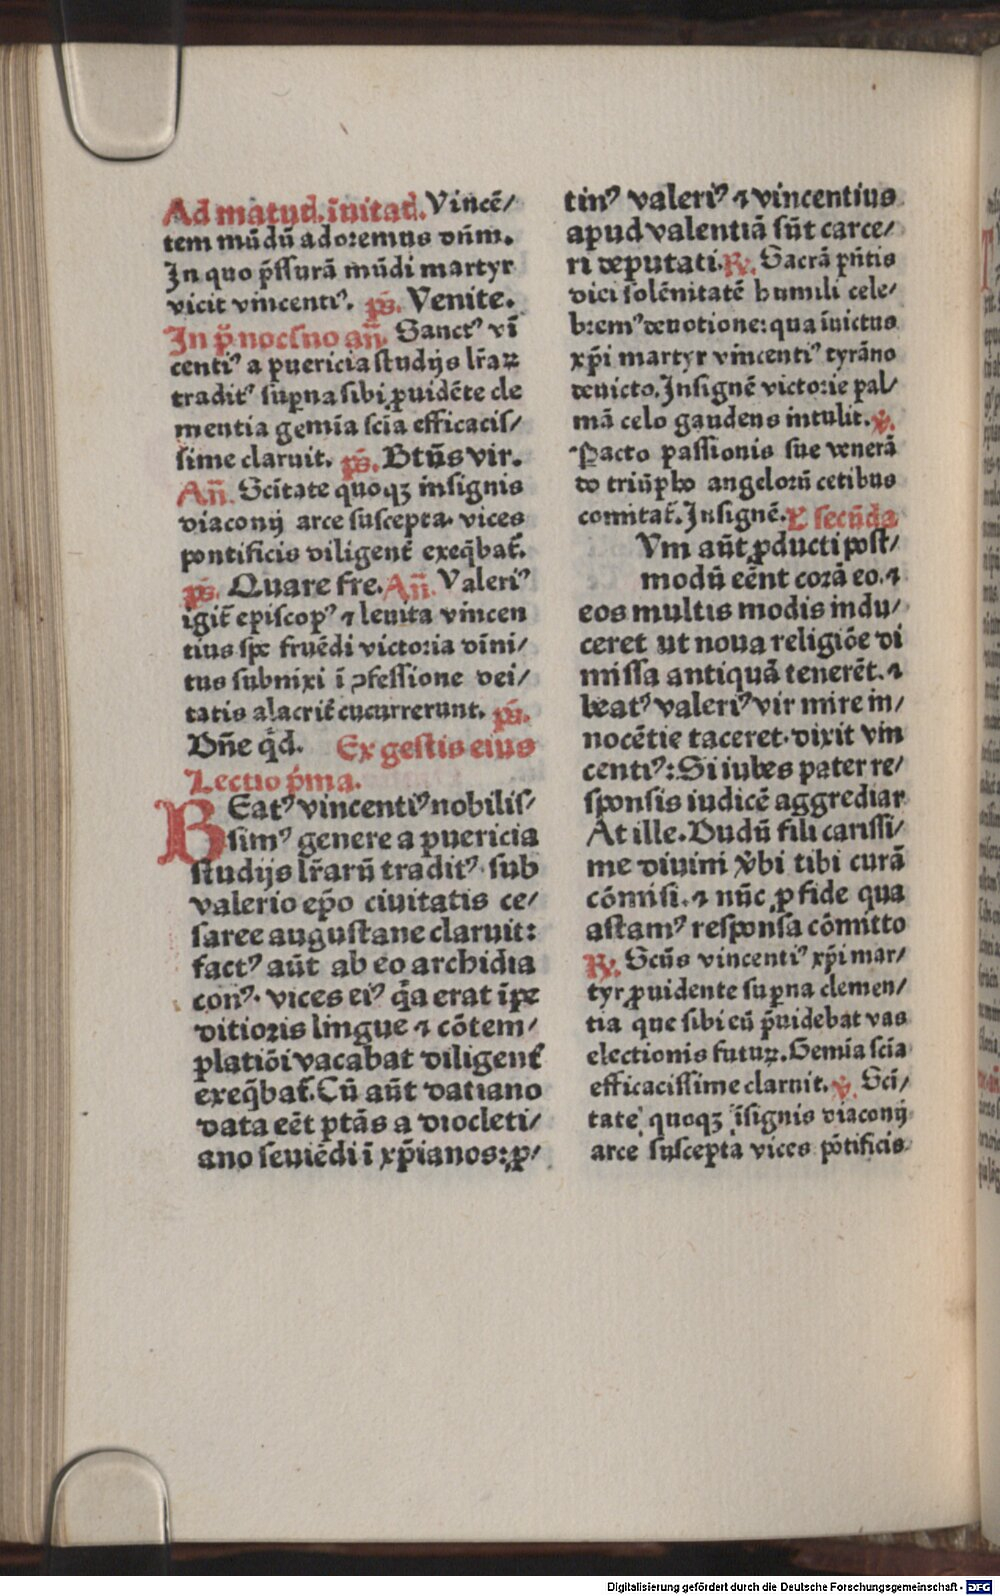 Ad matud. īuitad. Vincē/
tem mūdū adoremus dn̄m.
In quo p̄ssurā mūdi martyr
vicit vincentiꝰ. ps̄. Venite.
In p̄ nocturno an̄. Sanctꝰ vī
centiꝰ a puericia studijs lr̄aꝝ
traditꝰ superna sibi ꝓuidēte cle
mentia gemīa scīa efficacis/
sime claruit. ps̄. Btūs vir.
An̄. Scītate quoqꝫ insignis
diaconij arce suscepta vices
pontificis diligent̄ exeq̄bat̄.
ps̄. Quare fre. An̄. Valeriꝰ
igit̄ episcopꝰ ⁊ leuita vincen
tius spe fruēdi victoria dīni/
tus subnixi ī ꝯfessione dei/
tatis alacrit̄ cucurrerunt. ps̄.
Dn̄e q̇d. Ex gestis eius
Lectio p̄ma.
BEatꝰ vincentiꝰ nobilis/
simꝰ genere a puericia
studijs lr̄arū traditꝰ sub
valerio ep̄o ciuitatis ce/
saree augustane claruit:
factꝰ aūt ab eo archidia
conꝰ. vices eiꝰ q̇a erat īpe
ditioris lingue ⁊ cōtem/
platiōi vacabat diligent̄
exeq̄bat̄. Cū aūt datiano
data eēt ptās a diocleti/
ano seuiēdi ī xp̄ianos: ꝑ/
tinꝰ valeriꝰ ⁊ vincentius
apud valentiā sūt carce/
ri deputati. ℞. Sacrā pn̄tis
diei solēnitatē humili cele/
bremꝰ deuotione: qua īuictus
xp̄i martyr vincentiꝰ tyrāno
deuicto. Insignē victorie pal/
mā celo gaudens intulit. ℣.
Pacto passionis sue venerā
do triūpho angelorū cetibus
comitat̄. Insignē. L̄ secūda
Vm aūt ꝓducti post/
modū eēnt corā eo. ⁊
eos multis modis indu/
ceret ut noua religiōe di
missa antiquā tenerēt. ⁊
beatꝰ valeriꝰ vir mire in/
nocētie taceret. dixit vin
centiꝰ: Si iubes pater re/
sponsis iudicē aggrediar
At ille. Dudū fili carissi/
me diuini v̄bi tibi curā
cōmisi. ⁊ nūc ꝓ fide qua
astamꝰ responsa cōmitto
℞. Scūs vincentiꝰ xp̄i mar/
tyr ꝓuidente superna clemen/
tia que sibi eū p̄uidebat vas
electionis futuꝝ. Gemīa scīa
efficacissime claruit. ℣. Scī/
tate quoqꝫ īsignis diaconij
arce suscepta vices pōtificis